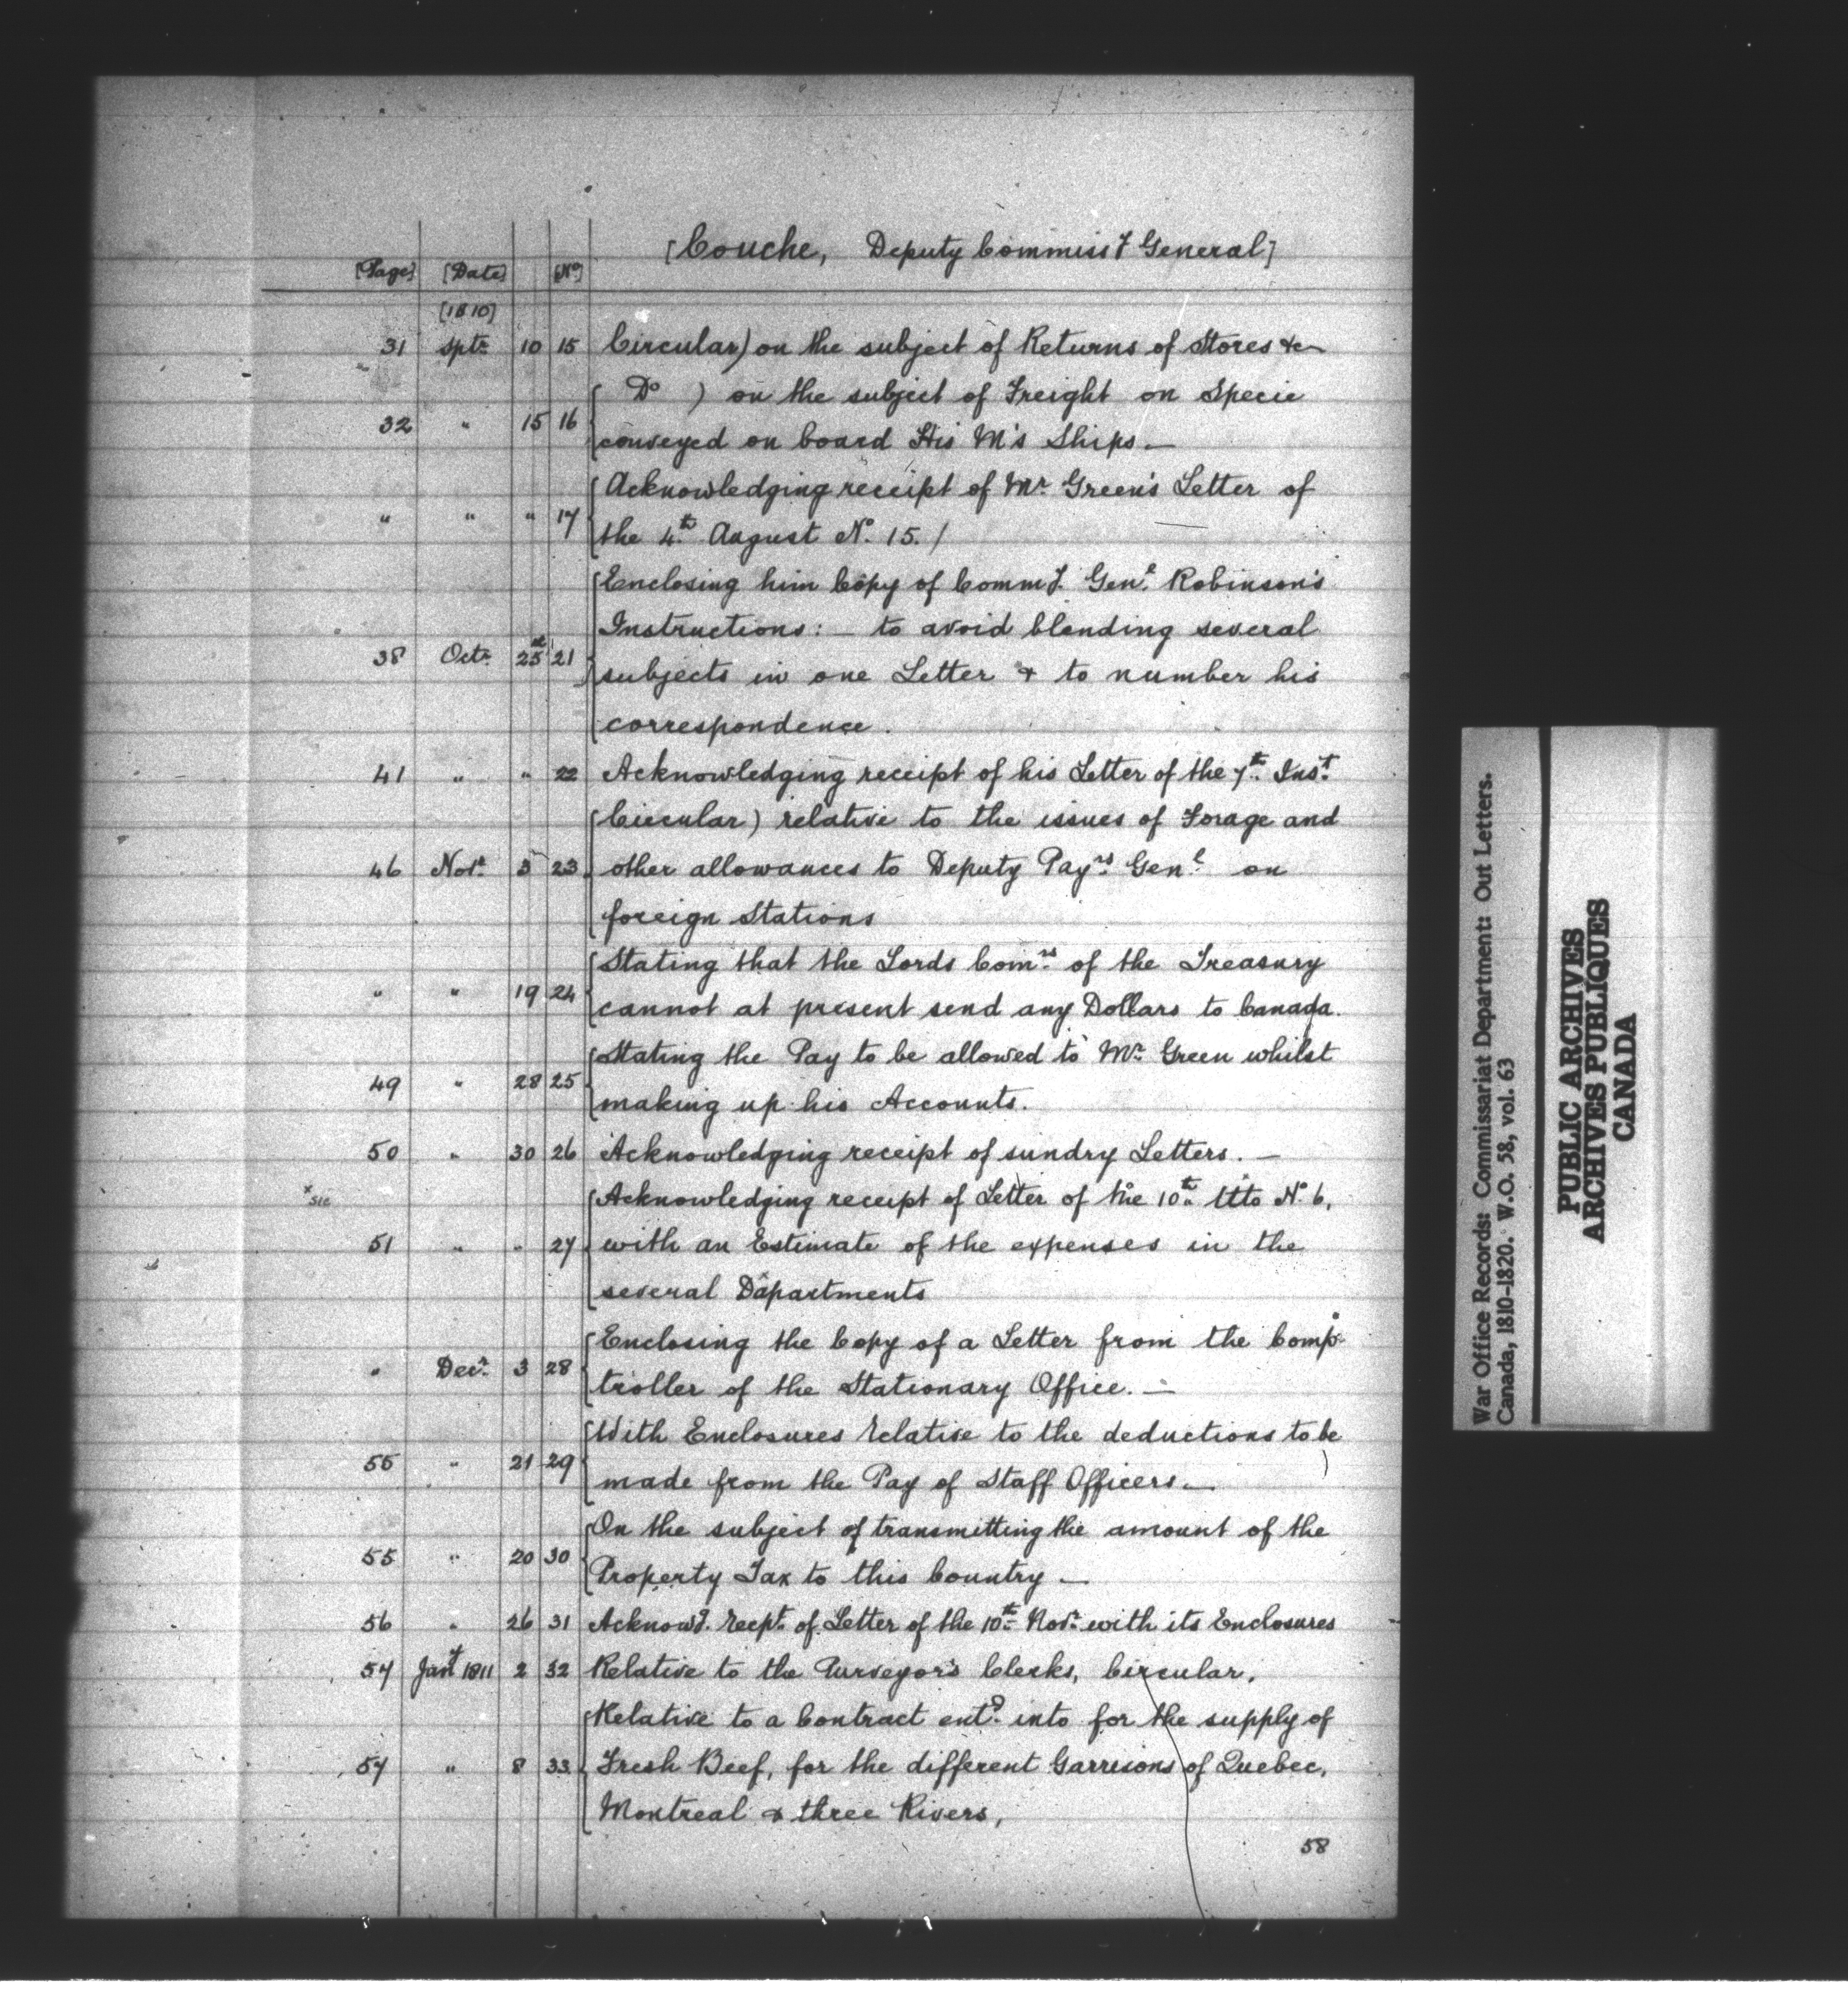 [Couche, Deputy Commissy General]
[Page] [Date] [No]
[1810]
31 Septr 10 15 Circular) on the subject of Returns of Stores &c
Do ) on the subject of Freight on Specie
32 " 15 16
conveyed on board His M's Ships.—
Acknowledging receipt of Mr. Green's Letter of
" " " 17
the 4th August No. 15./
Enclosing him Copy of Commy. Genl. Robinson's
Instructions: — to avoid blending several
38 Octr 25 21
subjects in one Letter & to number his
correspondence.
41 " " 22 Acknowledging receipt of his Letter of the 7th Inst.
Circular) relative to the issues of Forage and
46 Novr. 5 23 other allowances to Deputy Payrs Genl. on
foreign Stations
Stating that the Lords Comrs. of the Treasury
" " 19 24
cannot at present send any Dollars to Canada.
Stating the Pay to be allowed to Mr. Green whilst
49 " 28 25
making up his Accounts.
50 " 30 26 Acknowledging receipt of sundry Letters. —
x sic Acknowledging receipt of Letter of the 10th Ulto No. 6,
51 " " 27 with an Estimate of the expenses in the
several Dapartments
Enclosing the Copy of a Letter from the Comp-
" Decr. 3 28
troller of the Stationary Office. —
With Enclosures relative to the deductions to be
55 " 21 29
made from the Pay of Staff Officers.—
On the subject of transmitting the amount of the
55 " 20 30
Property Tax to this Country —
56 " 26 31 Acknowg. recpt. of Letter of the 10th Novr. with its Enclosures
57 Jany 1811 2 32 Relative to the Purveyor's Clerks, Circular.
Relative to a Contract entd. into for the supply of
57 " 8 33 Fresh Beef, for the different Garrisons of Quebec,
Montreal & three Rivers,
58
War Office Records: Commissariat Department: Out Letters.
Canada, 1810-1820. W.O. 58, vol. 63
PUBLIC ARCHIVES
ARCHIVES PUBLIQUES
CANADA